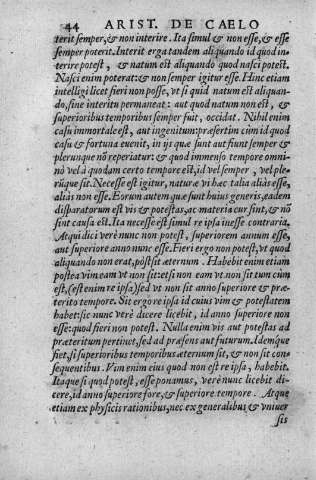 44 ARIST. DE CAELO
terit semper, & non interire. Ita simul & non esse, & esse
semper poterit. Interit erga tandem aliquando id quod in-
terire potest, & natum est aliquando quod nasci potest.
Nasci enim poterat: & non semper igitur esse. Hinc etiam
intelligi licet fieri non posse, vt si quid natum est aliquan-
do, sine interitu permaneat: aut quod natum non est, &
superioribus temporibus semper fuit, occidat. Nihil enim
casu immortale est, aut ingenitum: præsertim cùm id quod
casu & fortuna euenit, in ijs quæ sunt aut fiunt semper &
plerunque nō reperiatur: & quod immenso tempore omni-
nò vel à quodam certo tempore est, id vel semper, vel ple-
rūque sit. Necesse est igitur, naturæ vi hæc talia aliàs esse,
aliàs non esse. Eorum autem quæ sunt huius generis, eadem
disparatorum est vis & potestas, ac materia cur sint, & nō
sint causa est. Ita necesse est simul re ipsa inesse contraria.
Atqui dici verè nunc non potest, superiorem annum esse,
aut superiore anno nunc esse. Fieri ergo non potest, vt quod
aliquando non erat, pòst sit æternum. Habebit enim etiam
postea vim eam vt non sit: et si non eam vt non sit tum cùm
est, (est enim re ipsa) sed vt non sit anno superiore & præ-
terito tempore. Sit ergo re ipsa id cuius vim & potestatem
habet: sic nunc verè dicere licebit, id anno superiore non
esse: quod fieri non potest. Nulla enim vis aut potestas ad
præteritum pertinet, sed ad præsens aut futurum. Idemque
fiet, si superioribus temporibus æternum sit, & non sit con-
sequentibus. Vim enim eius quod non est re ipsa, habebit.
Itaque si quod potest, esse ponamus, verè nunc licebit di-
cere, id anno superiore fore, & superiore tempore. Atque
etiam ex physicis rationibus, nec ex generalibus & vniuer
sis